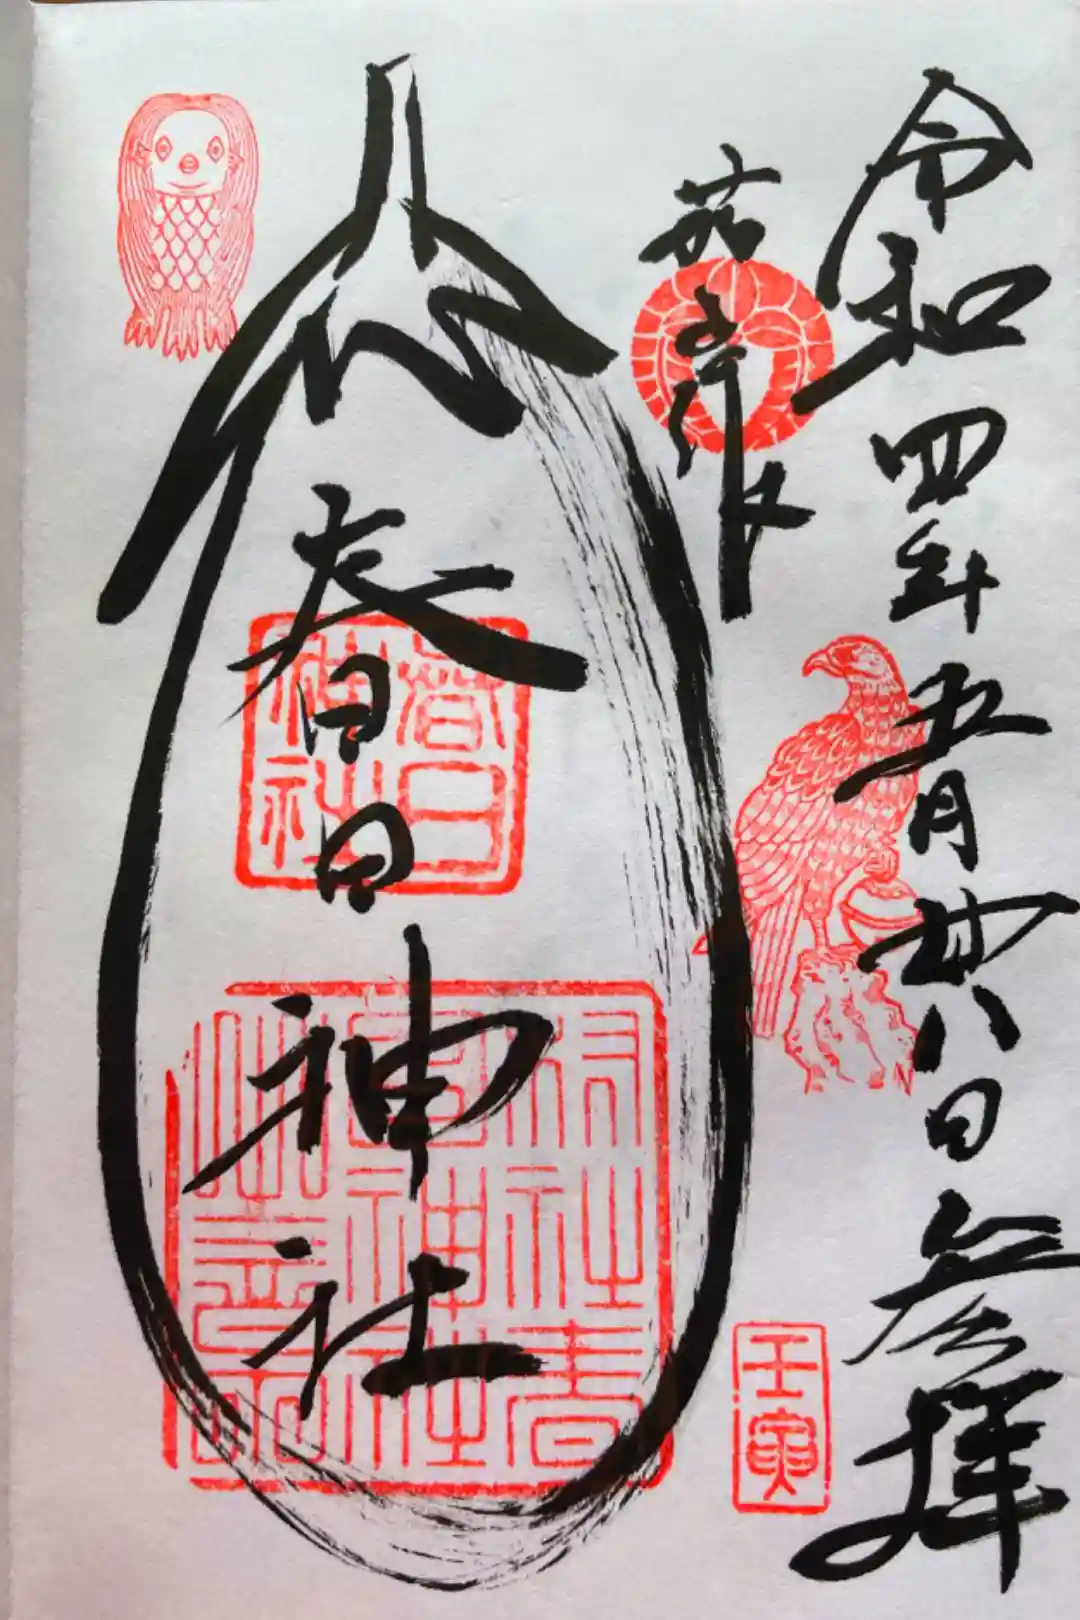 令和四年五月廿八日参拝
茄子作
春日神社
春日
神社
壬寅